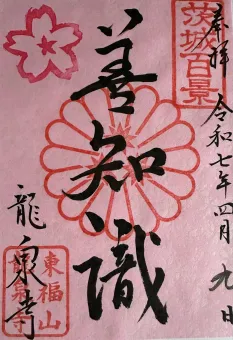 奉拝
令和七年四月九日
茨城百景
善知識
龍泉寺
東福山
龍泉寺